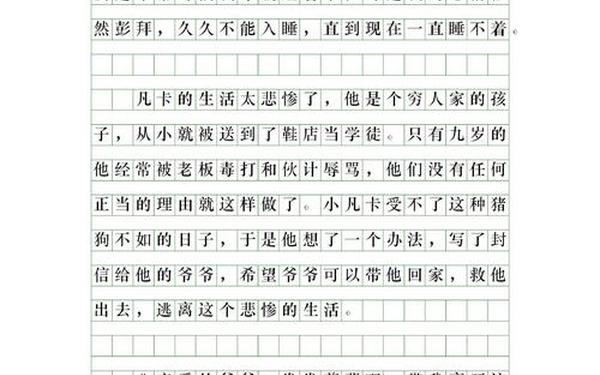 然彭拜，久久不能入睡，直到现在一直睡不着。
凡卡的生活太悲惨了，他是个穷人家的孩
子，从小就被送到了鞋店当学徒。只有九岁的
他经常被老板毒打和伙计辱骂，他们没有任何
正当的理由就这样做了。小凡卡受不了这种猪
狗不如的日子，于是他想了一个办法，写了封
信给他的爷爷，希望爷爷可以带他回家，救他
出去，逃离这个悲惨的生活。